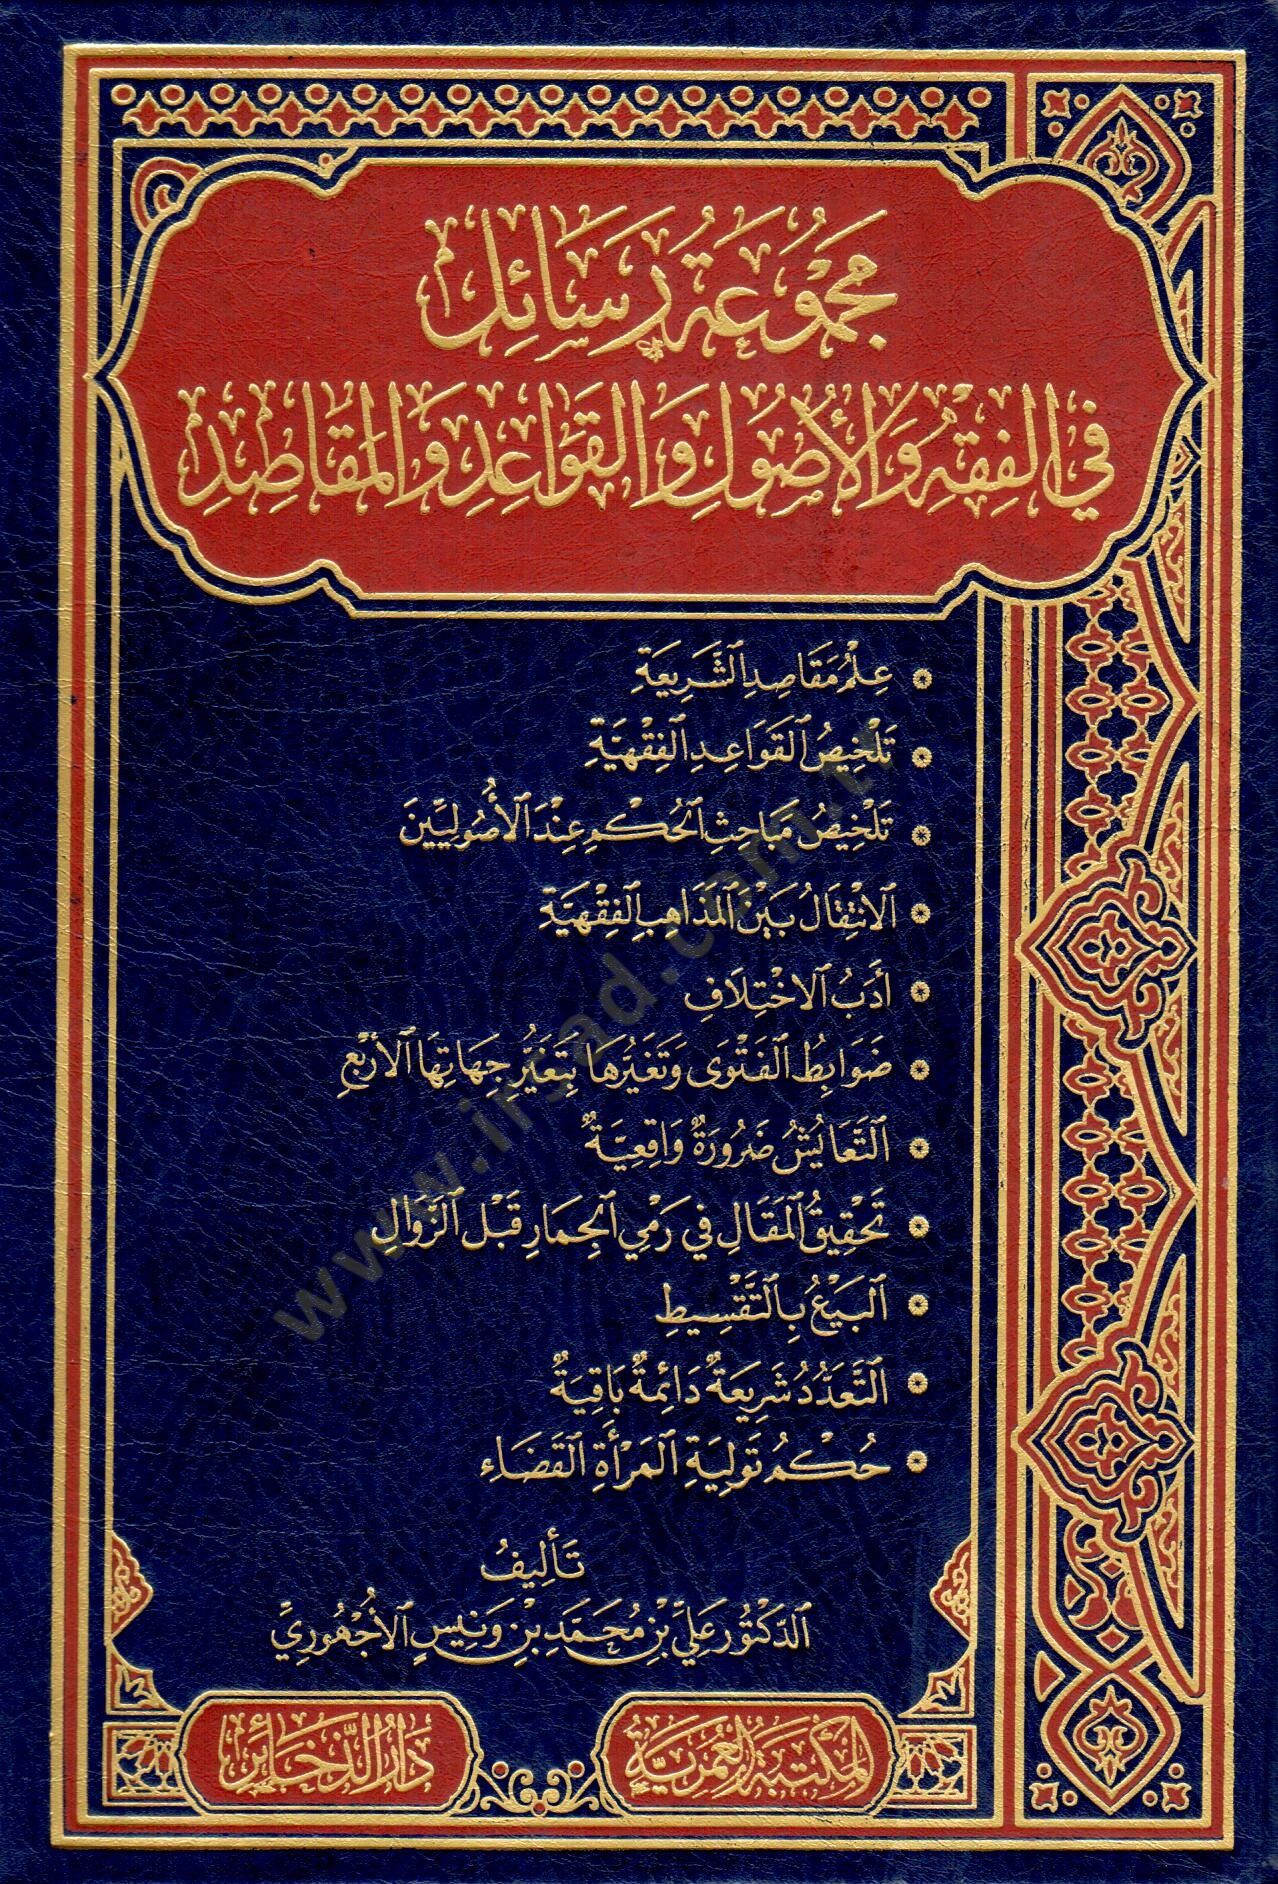 مَجْمُوعَةُ رَسَائِلَ
فِي الْفِقْهِ وَالْأُصُولِ وَالْقَوَاعِدِ وَالْمَقَاصِدِ
عِلْمُ مَقَاصِدِ الشَّرِيعَةِ
تَلْخِيصُ الْقَوَاعِدِ الْفِقْهِيَّةِ
تَلْخِيصُ مَبَاحِثِ الْحُكْمِ عِنْدَ الْأُصُولِيِّينَ
الِانْتِقَالُ بَيْنَ الْمَذَاهِبِ الْفِقْهِيَّةِ
أَدَبُ الِاخْتِلَافِ
ضَوَابِطُ الْفَتْوَى وَتَغَيُّرُهَا بِتَغَيُّرِ جِهَاتِهَا الْأَرْبَعِ
التَّعَايُشُ ضَرُورَةٌ وَاقِعِيَّةٌ
تَحْقِيقُ الْمَقَالِ فِي رَمْيِ الْجِمَارِ قَبْلَ الزَّوَالِ
الْبَيْعُ بِالتَّقْسِيطِ
التَّعَدُّدُ شَرِيعَةٌ دَائِمَةٌ بَاقِيَةٌ
حُكْمُ تَوْلِيَةِ الْمَرْأَةِ الْقَضَاءَ
تَأْلِيفُ
الدَّكْتُورِ عَلِيِّ بْنِ مُحَمَّدِ بْنِ وَنِيسٍ الْأُجْهُورِيِّ
الْمَكْتَبَةُ الْعُمَرِيَّةُ
دَارُ الذَّخَائِرِ
www.irsad.com.tr